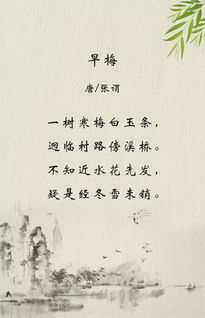 早梅
唐/张谓
一树寒梅白玉条，
迥临村路傍溪桥。
不知近水花先发，
疑是经冬雪未销。